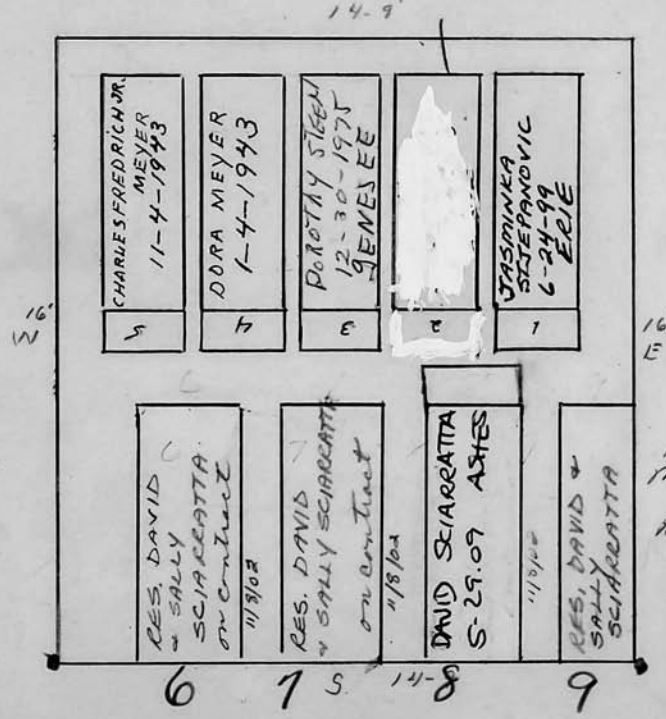 14-9'
CHARLES FREDRICH JR.
MEYER
11-4-1943
DORA MEYER
1-4-1943
DOROTHY STEEN
12-30-1975
GENESEE
JASMINKA
STJEPANOVIC
6-24-99
ERIE
16'
W
5
4
3
2
1
16
E
RES. DAVID
& SALLY
SCIARRATTA
on contract
11/8/02
RES. DAVID
& SALLY SCIARRATTA
on contract
11/8/02
DAVID SCIARRATTA
5-29.09 ASHES
11/8/02
RES. DAVID &
SALLY
SCIARRATTA
6
7
S.
14-
8
9